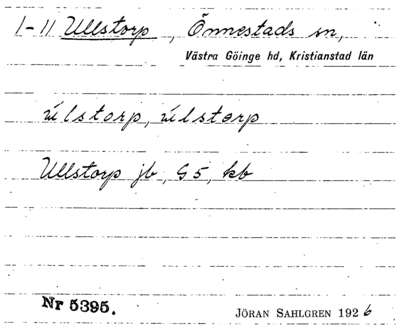 1-11 Ullstorp, Önnestads sn,
Västra Göinge hd, Kristianstad län
úlstorp, úlstorp
Ullstorp jb, G5, kb
Nr 5395.
JÖRAN SAHLGREN 1926